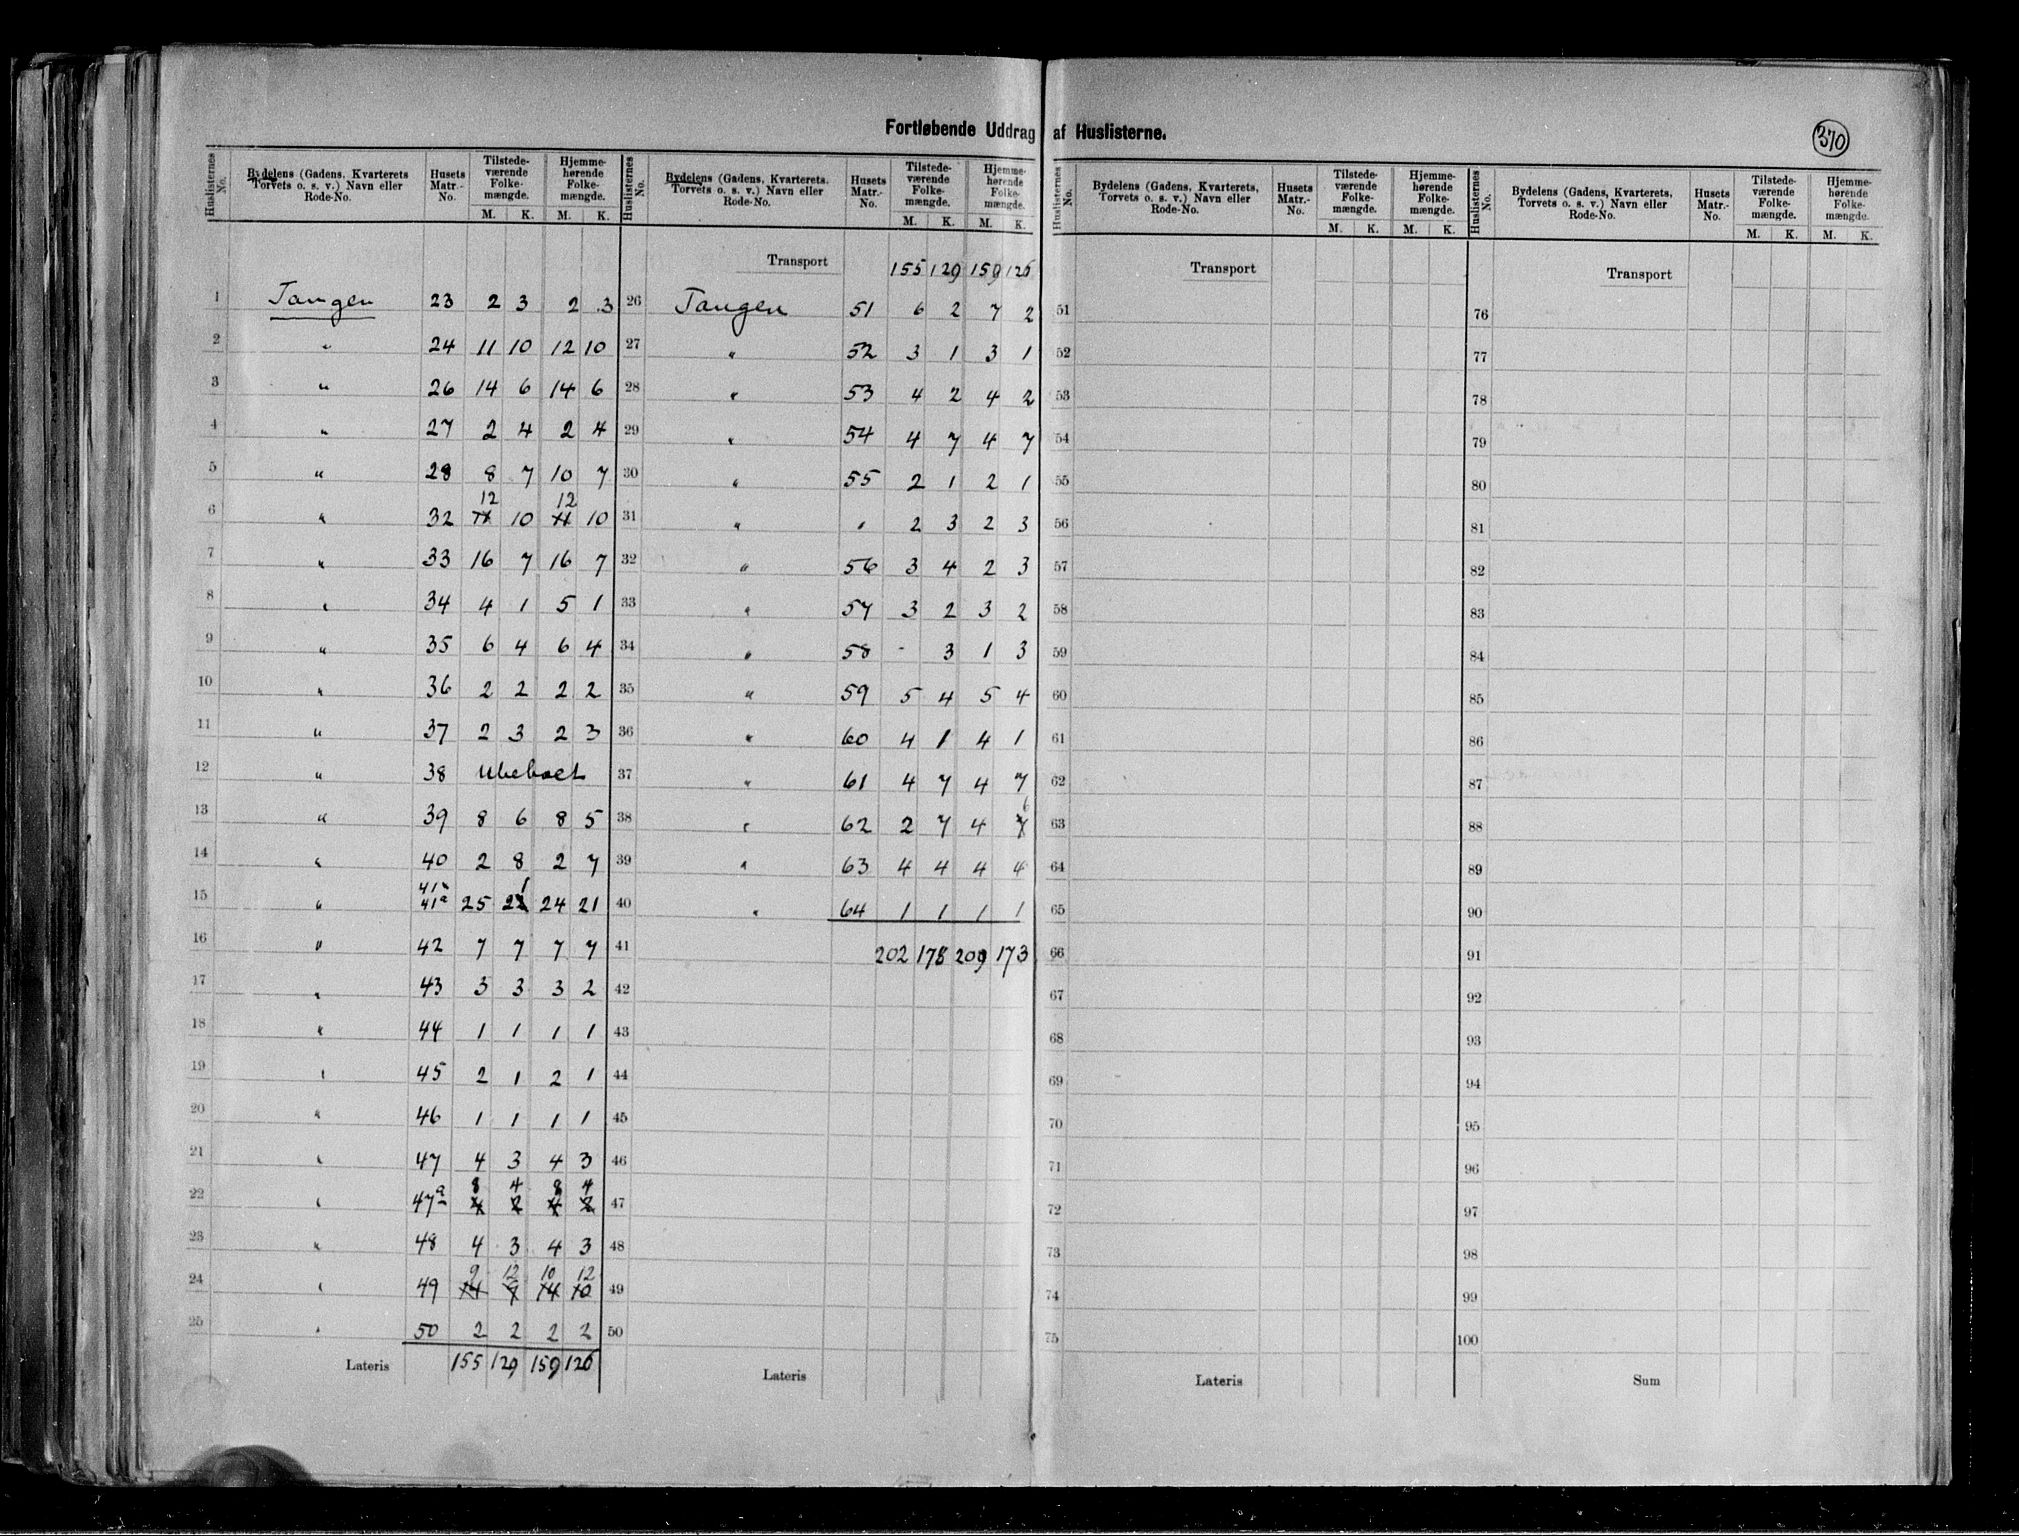 Fortløbende Uddrag af Huslisterne.
370
Huslisternes No. Bydelens (Gadens, Kvarterets Torvets o. s. v.) Navn eller Rode-No. Husets Matr.-No. Tilstedeværende Folkemængde. M. K. Hjemmehørende Folkemængde. M. K.
1 Tangen 23 2 3 2 3
2 " 24 11 10 12 10
3 " 26 14 6 14 6
4 " 27 2 4 2 4
5 " 28 8 7 10 7
12 12
6 " 32 11 10 11 10
7 " 33 16 7 16 7
8 " 34 4 1 5 1
9 " 35 6 4 6 4
10 " 36 2 2 2 2
11 " 37 2 3 2 3
12 " 38 Ubeboet
13 " 39 8 6 8 5
14 " 40 2 8 2 7
15 " 41a 25 21 24 21
16 " 42 7 7 7 7
17 " 43 3 3 3 2
18 " 44 1 1 1 1
19 " 45 2 1 2 1
20 " 46 1 1 1 1
21 " 47 4 3 4 3
8 4 8 4
22 " 47a 4 2 4 2
23 " 48 4 3 4 3
9 12 10 12
24 " 49 14 9 14 10
25 " 50 2 2 2 2
Lateris 155 129 159 126
Huslisternes No. Bydelens (Gadens, Kvarterets, Torvets o. s. v.) Navn eller Rode-No. Husets Matr.-No. Tilstedeværende Folkemængde. M. K. Hjemmehørende Folkemængde. M. K.
Transport 155 129 159 126
26 Tangen 51 6 2 7 2
27 " 52 3 1 3 1
28 " 53 4 2 4 2
29 " 54 4 7 4 7
30 " 55 2 1 2 1
31 " " 2 3 2 3
32 " 56 3 4 2 3
33 " 57 3 2 3 2
34 " 58 - 3 1 3
35 " 59 5 4 5 4
36 " 60 4 1 4 1
37 " 61 4 7 4 7
6
38 " 62 2 7 4 7
39 " 63 4 4 4 4
40 " 64 1 1 1 1
41 202 178 209 173
42
43
44
45
46
47
48
49
50
Lateris
Huslisternes No. Bydelens (Gadens, Kvarterets, Torvets o. s. v.) Navn eller Rode-No. Husets Matr.-No. Tilstedeværende Folkemængde. M. K. Hjemmehørende Folkemængde. M. K.
Transport
51
52
53
54
55
56
57
58
59
60
61
62
63
64
65
66
67
68
69
70
71
72
73
74
75
Lateris
Huslisternes No. Bydelens (Gadens, Kvarterets, Torvets o. s. v.) Navn eller Rode-No. Husets Matr.-No. Tilstedeværende Folkemængde. M. K. Hjemmehørende Folkemængde. M. K.
Transport
76
77
78
79
80
81
82
83
84
85
86
87
88
89
90
91
92
93
94
95
96
97
98
99
100
Sum